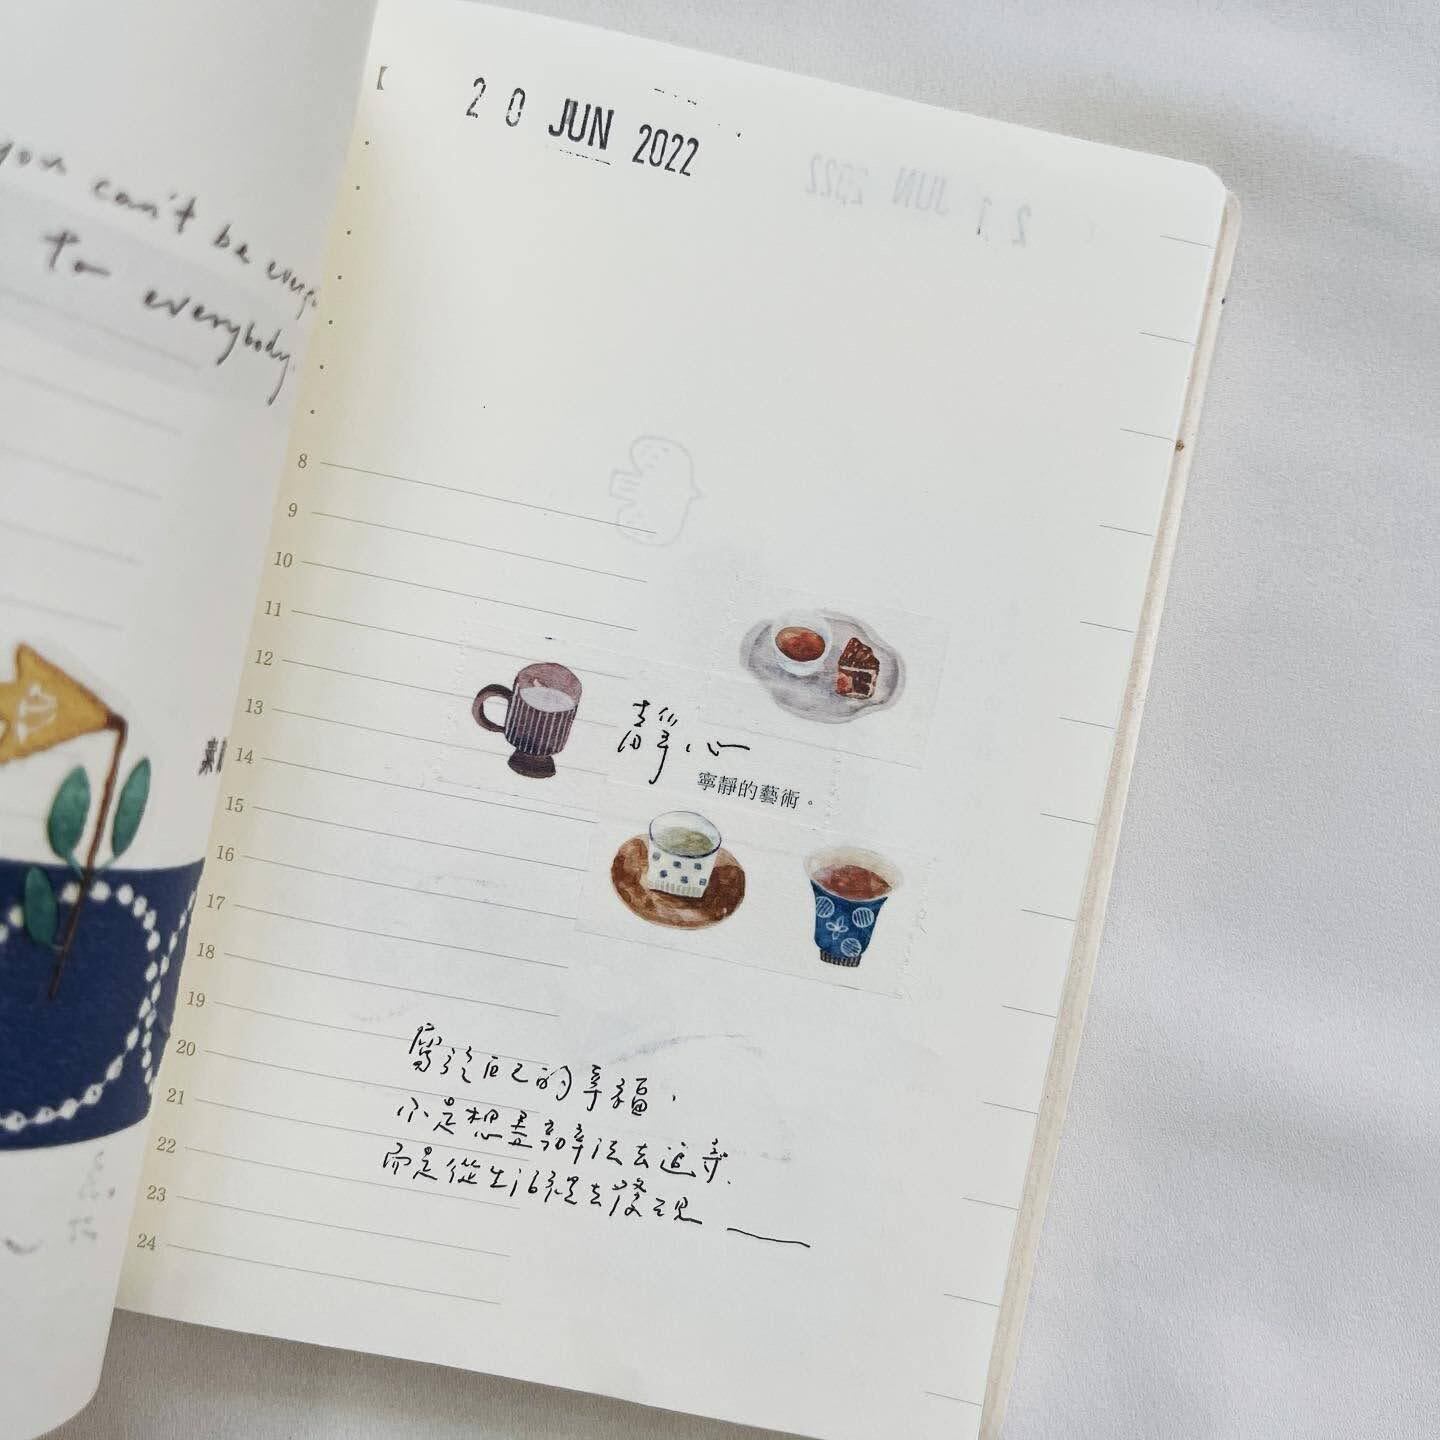 you can't be
to everybody.
20 JUN 2022
21 JUN 2022
8
9
10
11
12
13
14
15
16
17
18
19
20
21
22
23
24
靜心
寧靜的藝術。
屬於自己的幸福，
不是想盡辦法去追尋，
而是從生活裡去發現